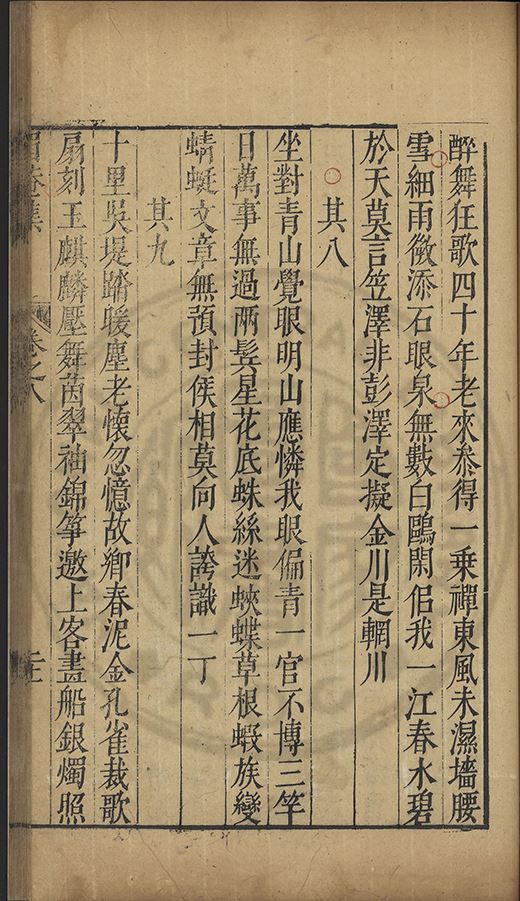 醉舞狂歌四十年老來叅得一乗禪東風未濕墻腰
雪細雨微添石眼泉無數白鷗閑侣我一江春水碧
於天莫言笠澤非彭澤定擬金川是輞川
其八
坐對青山覺眼明山應憐我眼偏青一官不博三竿
日萬事無過兩鬂星花底蛛絲迷蛺蝶草根蝦族變
蜻蜓文章無預封侯相莫向人誇識一丁
其九
十里吳堤踏暖塵老懷忽憶故鄉春泥金孔雀裁歌
扇刻玉麒麟壓舞茵翠袖錦筝邀上客畫船銀燭照
卷之八